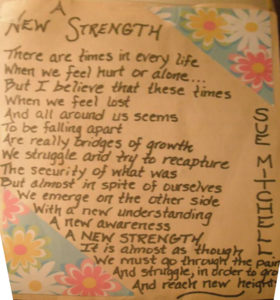 A
NEW STRENGTH
There are times in every life
When we feel hurt or alone...
But I believe that these times
When we feel lost
And all around us seems
To be falling apart
Are really bridges of growth
We struggle and try to recapture
The security of what was
But almost in spite of ourselves
We emerge on the other side
With a new understanding
A new awareness
A NEW STRENGTH
It is almost as though
We must go through the pain
And struggle, in order to gro
And reach new height
SUE MITCHELL